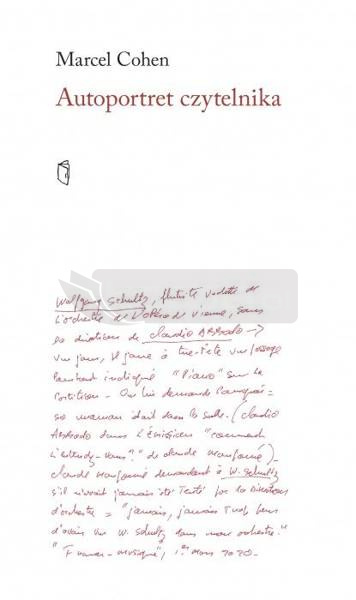 Marcel Cohen
Autoportret czytelnika
Wolfgang Schultz, flutiste vedette de
l'orchestre de l'Opéra de Vienne, sous
la direction de Claudio Abbado →
un jour, il joue à tue-tête un passage
pourtant indiqué "Piano" sur la
partition - On lui demande Pourquoi
sa maman était dans la salle. (Claudio
Abbado dans l'émission "comment
l'entendez-vous?" de Claude Maupomé) -
Claude Maupomé demandant à W. Schultz
s'il n'avait jamais été tenté par la direction
d'orchestre = "jamais, jamais Trop peur
d'avoir un W. Schultz dans mon orchestre!"
"France-musique", 1er Mars 2020-